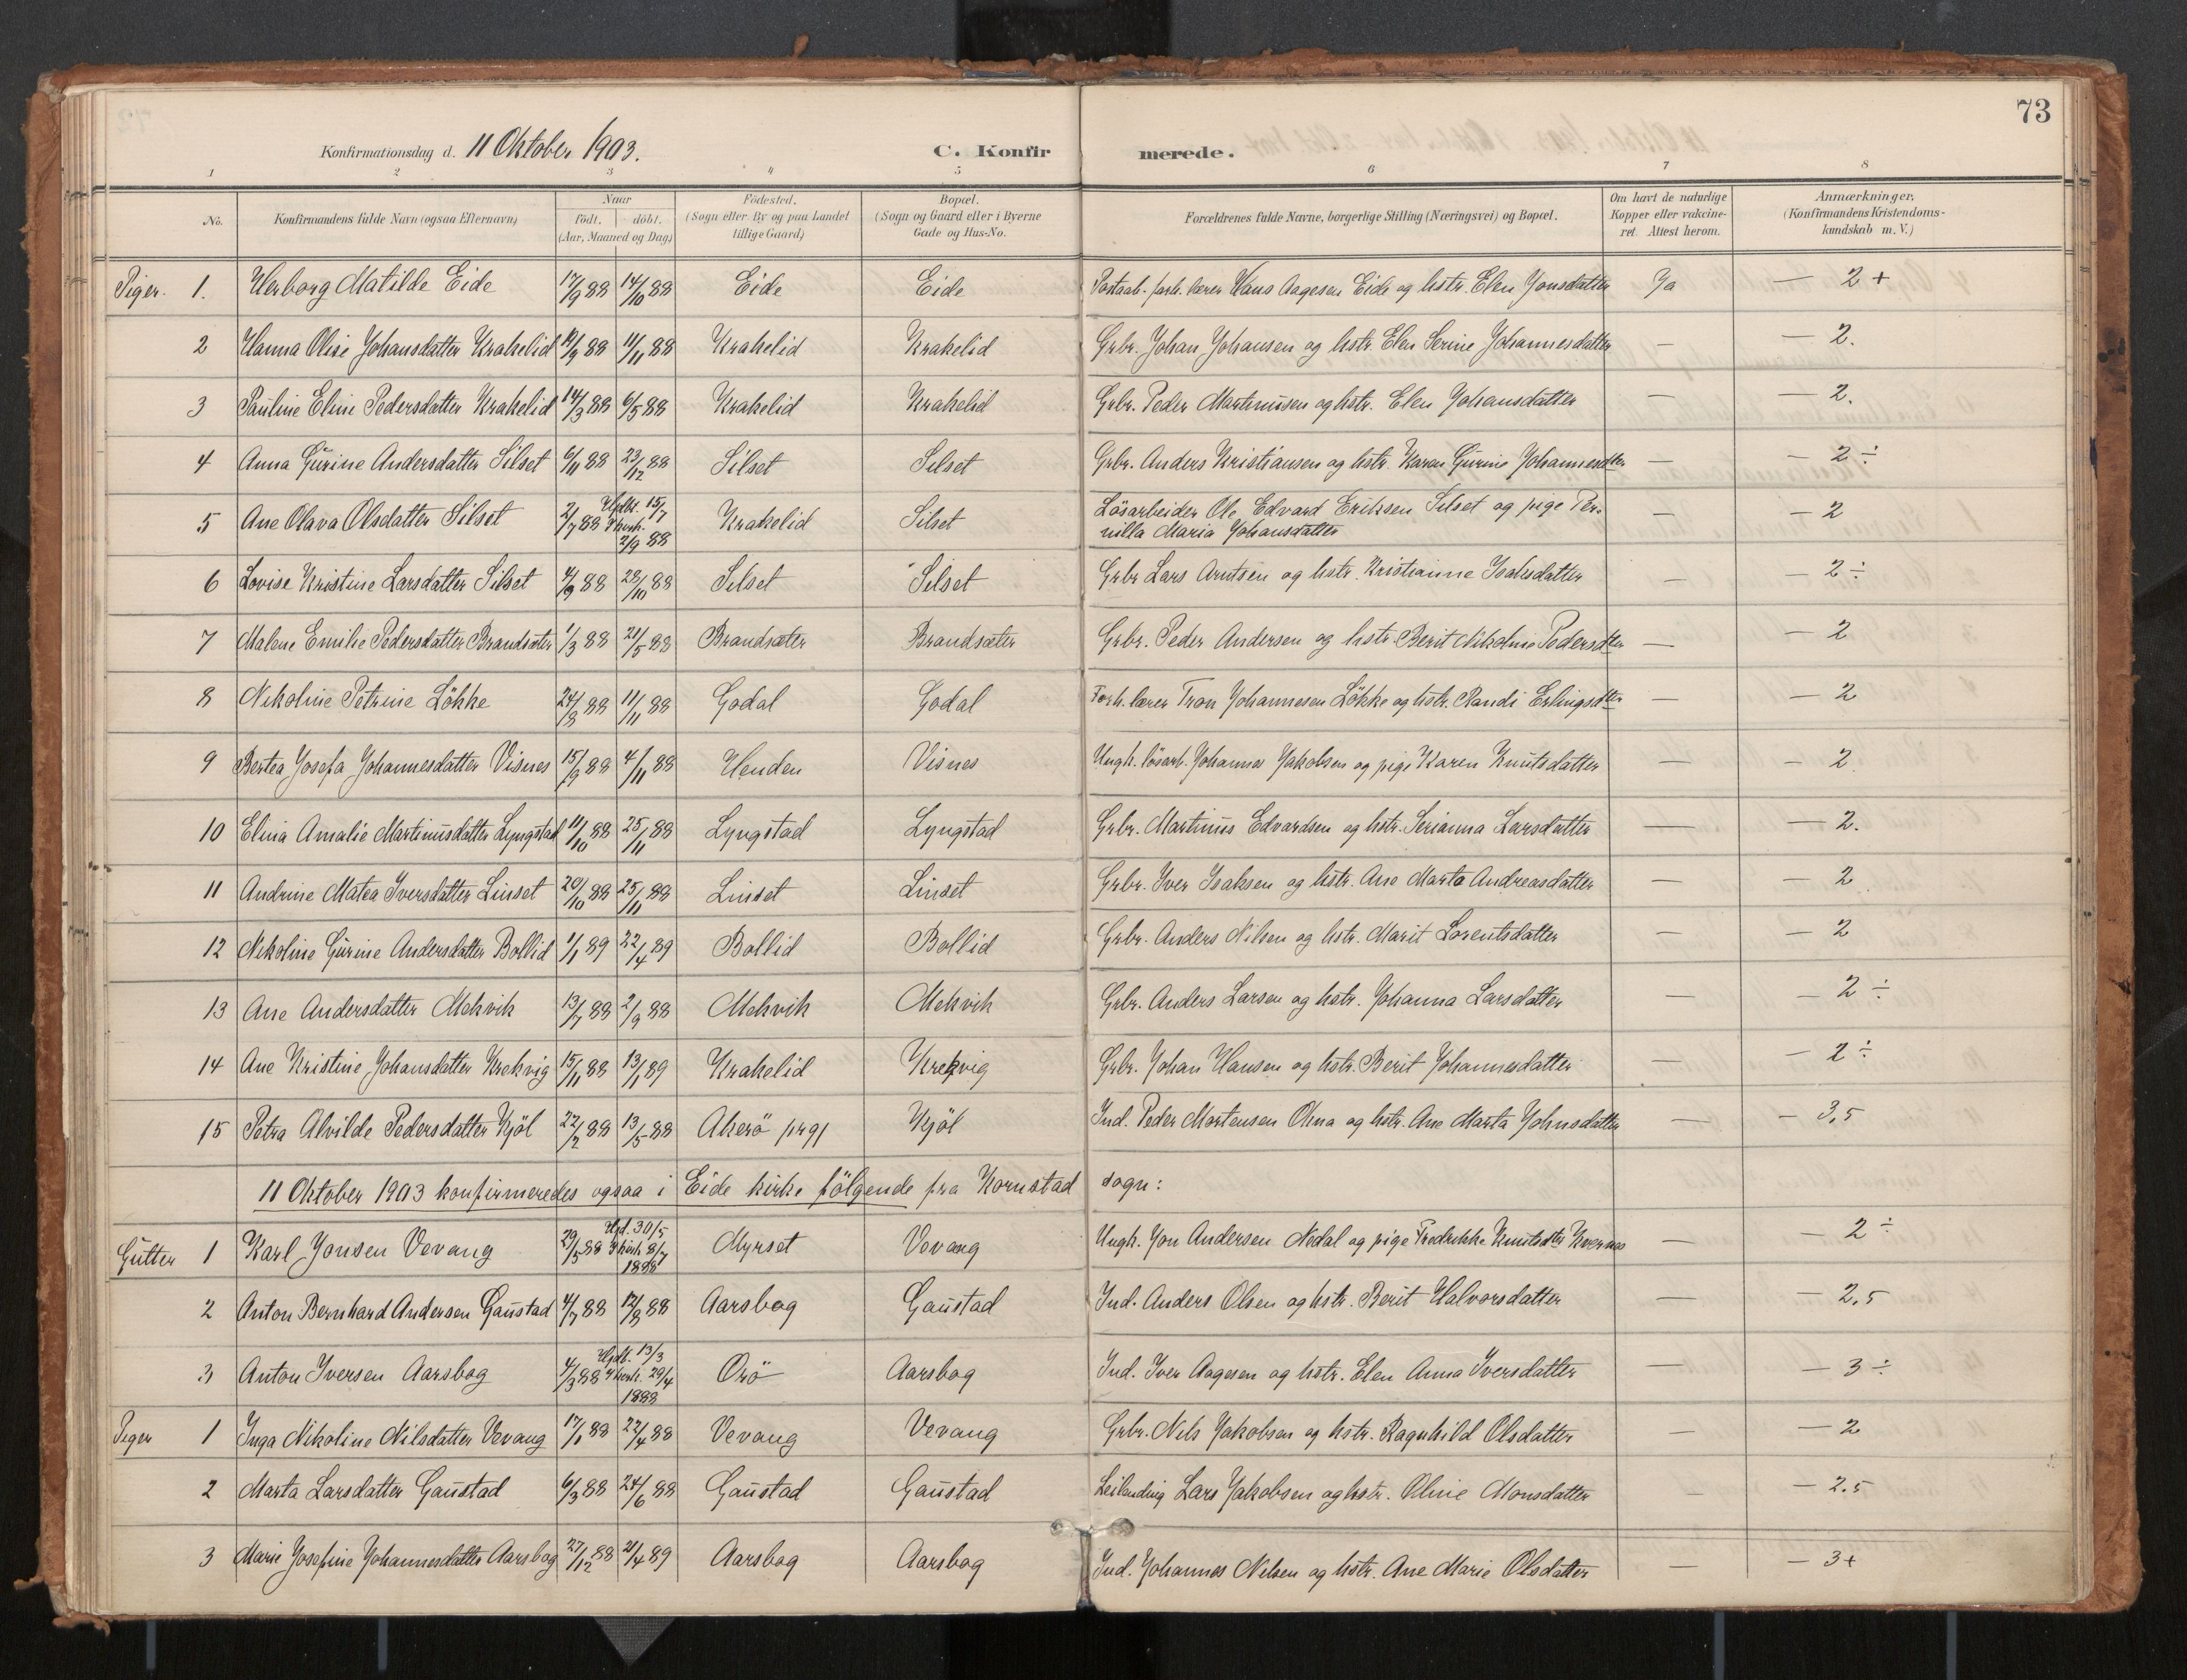 73
Konfirmationsdag d. 11 Oktober 1903. C. Konfirmerede.
1 2 3 4 5 6 7 8
No. Konfirmandens fulde Navn (ogsaa Efternavn) Naar födt. döbt. (Aar, Maaned og Dag) Födested. (Sogn eller By og paa Landet tillige Gaard) Bopæl. (Sogn og Gaard eller i Byerne Gade og Hus-No. Forældrenes fulde Navne, borgerlige Stilling (Næringsvei) og Bopæl. Om havt de naturlige Kopper eller vakcineret. Attest herom. Anmærkninger. (Konfirmandens Kristendomskundskab m.V.)
Piger. 1. Herborg Matilde Eide 17/9 88 14/10 88 Eide Eide Postaab. forh. lærer Hans Aagesen Eide og hstr. Elen Jonsdatter Ja — 2 +
2 Hanna Oline Johansdatter Krakelid 12/9 88 11/11 88 Krakelid Krakelid Grbr. Johan Johansen og hstr. Elen Serine Johannesdatter — — 2.
3 Pauline Eline Pedersdatter Krakelid 14/3 88 6/5 88 Krakelid Krakelid Grbr. Peder Martinusen og hstr. Elen Johansdatter — — 2.
4 Anna Gurine Andersdatter Silset 6/11 88 23/12 88 Silset Silset Grbr. Anders Kristiansen og hstr. Karen Gurine Johannesdtter — — 2 ÷
5 Ane Olava Olsdatter Silset 2/7 88 Hjdbt. 15/7 I kirk. 2/9 88 Krakelid Silset Lösarbeider Ole Edvard Eriksen Silset og pige Per-
nilla Maria Johansdatter — — 2
6 Lovise Kristine Larsdatter Silset 4/9 88 28/10 88 Silset Silset Grbr Lars Arntsen og hstr. Kristianne Isaksdatter — — 2 ÷
7 Malene Emilie Pedersdatter Brandsæter 1/3 88 21/5 88 Brandsæter Brandsæter Grbr. Peder Andersen og hstr. Berit Nikoline Pedersdtter — — 2
8 Nikoline Petrine Lökke 24/8 88 11/11 88 Godal Godal Forh. lærer Tron Johannesen Lökke og hstr. Randi Erlingsdtter — — 2
9 Bertea Josefa Johannesdatter Visnes 15/9 88 4/11 88 Henden Visnes Ungk. lösarb. Johannes Jakobsen og pige Karen Knutsdatter — — 2
10 Elina Amalie Martinusdatter Lyngstad 11/10 88 25/11 88 Lyngstad Lyngstad Grbr. Martinus Edvardsen og hstr. Serianna Larsdatter — — 2.
11 Andrine Matea Iversdatter Linset 20/10 88 25/11 88 Linset Linset Grbr. Iver Isaksen og hstr. Ane Marta Andreasdatter — — 2
12 Nikoline Gurine Andersdatter Bollid 1/1 89 22/4 89 Bollid Bollid Grbr. Anders Nilsen og hstr. Marit Lorentsdatter — — 2
13 Ane Andersdatter Mekvik 13/7 88 2/9 88 Mekvik Mekvik Grbr. Anders Larsen og hstr. Johanna Larsdatter — — 2 ÷
14 Ane Kristine Johansdatter Krekvig 15/11 88 13/1 89 Krakelid Krekvig Grbr. Johan Hansen og hstr. Berit Johannesdatter — — 2 ÷
15 Petra Alvilde Pedersdatter Kjöl 22/2 88 13/5 88 Akerö prgj Kjöl Ind. Peder Mortensen Okna og hstr. Ane Marta Johnsdatter — — 3,5
11 Oktober 1903 konfirmeredes ogsaa i Eide kirke fölgende fra Kornstad sogn:
Gutter 1 Karl Jonsen Vevang 29/5 88 Hjd. 30/5 I kirk 8/7 1888 Myrset Vevang Ungk. Jon Andersen Nedal og pige Fredrikke Knutsdtr Kvernes — — 2 ÷
2 Anton Bernhard Andersen Gaustad 4/7 88 12/8 88 Aarsbog Gaustad Ind. Anders Olsen og hstr. Berit Halvorsdatter — — 2,5
3 Anton Iversen Aarsbog 4/3 88 Hjdb. 13/3 I kirk. 29/4 1888 Orö Aarsbog Ind. Iver Aagesen og hstr. Elen Anna Iversdatter — — 3 ÷
Piger 1 Inga Nikoline Nilsdatter Vevang 17/1 88 22/4 88 Vevang Vevang Grbr. Nils Jakobsen og hstr. Ragnhild Olsdatter — — 2
2 Marta Larsdatter Gaustad 6/3 88 24/6 88 Gaustad Gaustad Leilending Lars Jakobsen og hstr. Oline Monsdatter — — 2.5
3 Marie Josefine Johannesdatter Aarsbog 27/12 88 21/4 89 Aarsbog Aarsbog Ind. Johannes Nilsen og hstr. Ane Marie Olsdatter — — 3+